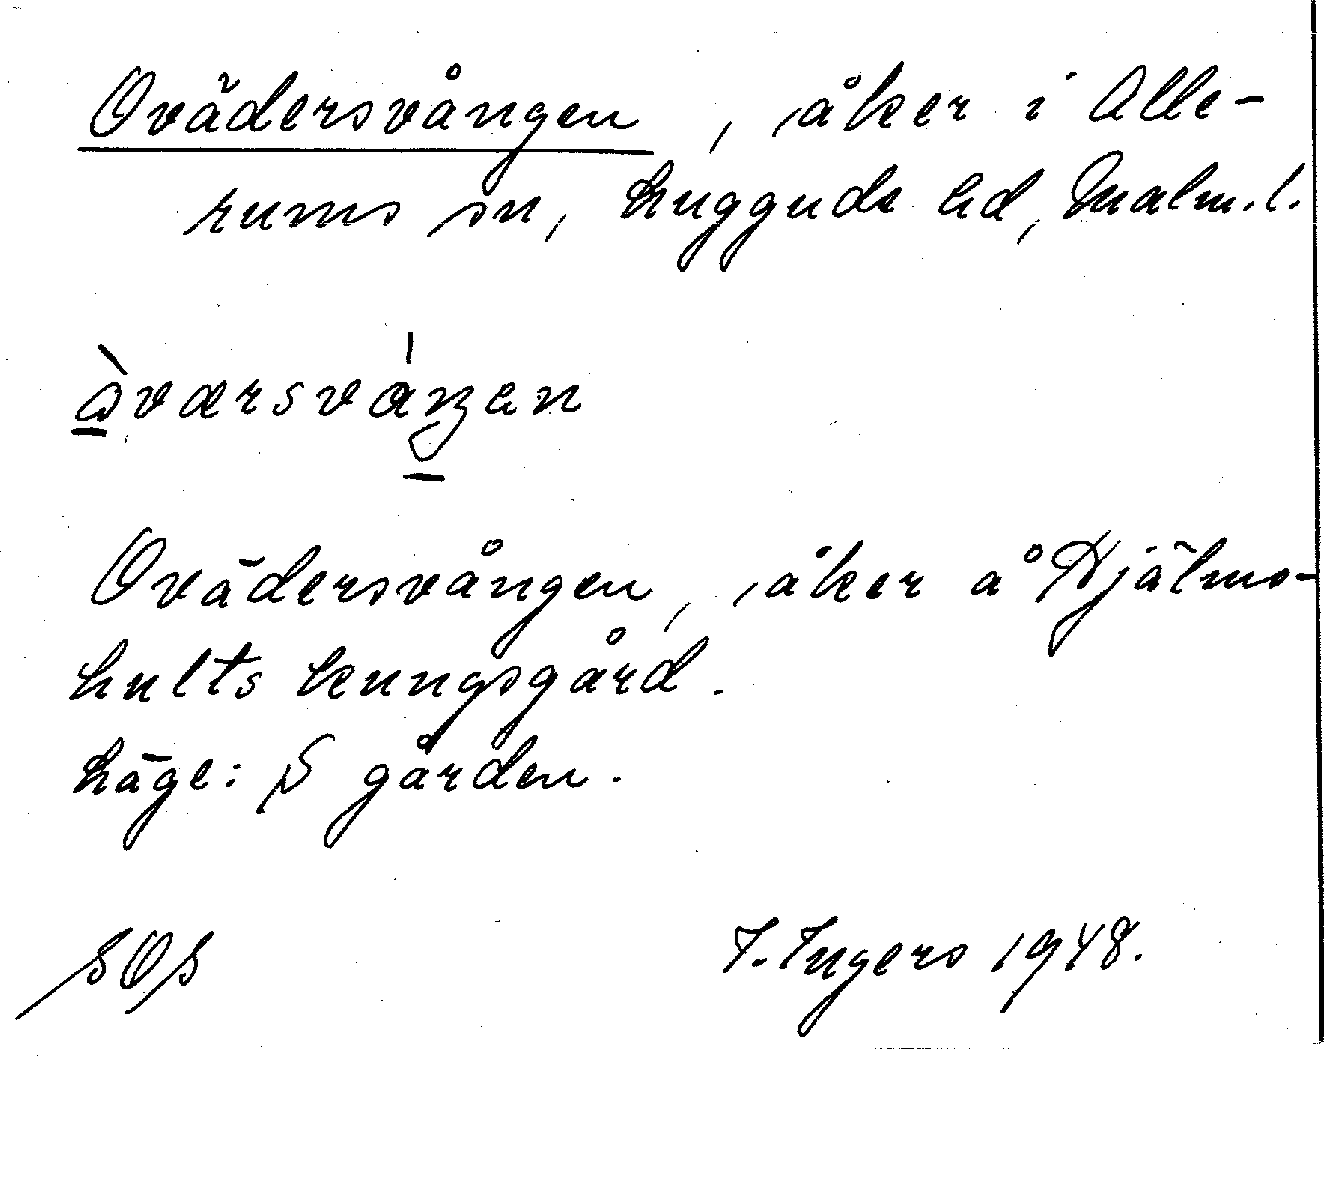 Ovädersvången, åker i Alle-
rums sn, Luggude hd, Malm. l.
Ovädersvången, åker å Hjälms-
hults kungsgård.
Läge: S gården.
SOS I. Ingers 1948.